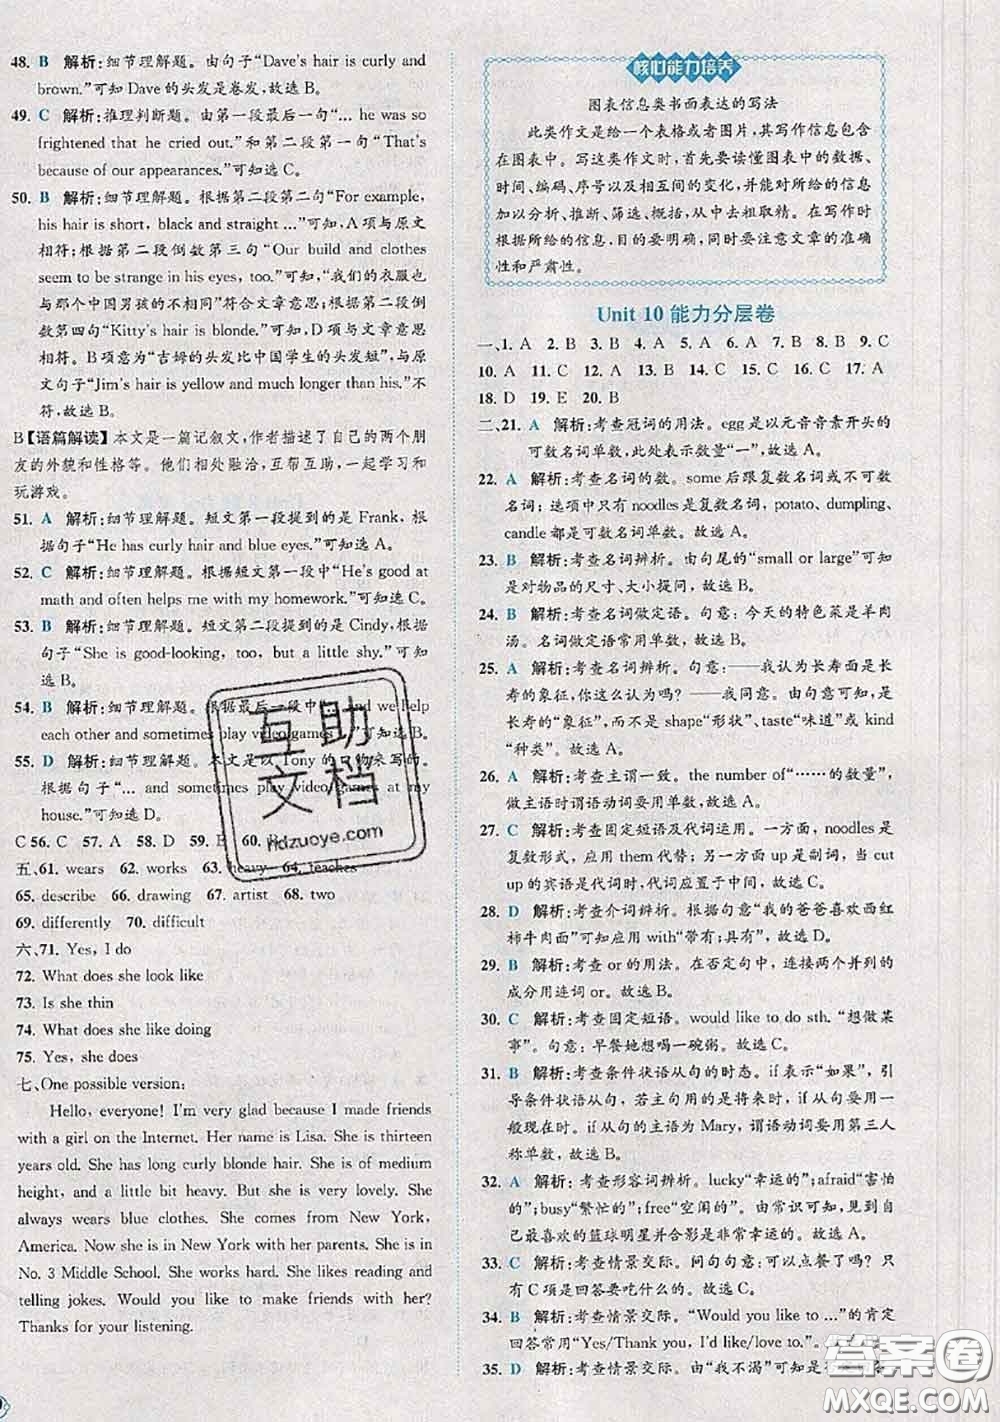 48. B 解析:细节理解题。由句子“Dave's hair is curly and
brown.”可知 Dave 的头发是卷发,故选 B。
49. C 解析:推理判断题。由第一段最后一句“... he was so
frightened that he cried out.”和第二段第一句“That's
because of our appearances.”可知选 C。
50. B 解析:细节理解题。根据第二段第二句“For example,
his hair is short, black and straight ...”可知,A 项与原文
相符;根据第二段倒数第三句“Our build and clothes
seem to be strange in his eyes, too.”可知,“我们的衣服也
与那个中国男孩的不同”符合文章意思。根据第二段倒数
第四句“Kitty's hair is blonde.”可知,D 项与文章意思相
符。B 项意为“吉姆的头发比中国学生的头发短”,与原
文句子“Jim's hair is yellow and much longer than his.”不
符,故选 B。
B【语篇解读】本文是一篇记叙文,作者描述了自己的两个朋
友的外貌和性格等。他们相处融洽,互帮互助,一起学习和
玩游戏。
51. A 解析:细节理解题。短文第一段提到的是 Frank,根
据句子“He has curly hair and blue eyes.”可知选 A。
52. C 解析:细节理解题。根据短文第一段中“He's good at
math and often helps me with my homework.”可知选 C。
53. B 解析:细节理解题。短文第二段提到的是 Cindy,根据
句子“She is good-looking, too, but a little shy.”可知
选 B。
54. B 解析:细节理解题。根据最后一段中“... and we help
each other and sometimes play video games ...”可知选 B。
55. D 解析:细节理解题。本文是以 Tony 的口吻来写的。
根据句子“... and sometimes play video games at my
house.”可知选 D。
C 56. C 57. A 58. D 59. B 60. B
五、61. wears 62. works 63. heavy 64. teaches
65. describe 66. drawing 67. artist 68. two
69. differently 70. difficult
六、71. Yes, I do
72. What does she look like
73. Is she thin
74. What does she like doing
75. Yes, she does
七、One possible version:
Hello, everyone! I'm very glad because I made friends
with a girl on the Internet. Her name is Lisa. She is thirteen
years old. She has long curly blonde hair. She is of medium
height, and a little bit heavy. But she is very lovely. She
always wears blue clothes. She comes from New York,
America. Now she is in New York with her parents. She is in
No. 3 Middle School. She works hard. She likes reading and
telling jokes. Would you like to make friends with her?
Thanks for your listening.
核心能力培养
图表信息类书面表达的写法
此类作文是给一个表格或者图片,其写作信息包含
在图表中。写这类作文时,首先要读懂图表中的数据、
时间、编码、序号以及相互间的变化,并能对所给的信息
加以分析、推断、筛选、概括,从中去粗取精。在写作时
根据所给的信息,目的要明确,同时要注意文章的准确
性和严肃性。
Unit 10 能力分层卷
一、1. A 2. B 3. B 4. C 5. B 6. A 7. B 8. B 9. C
10. A 11. C 12. C 13. C 14. B 15. C 16. C 17. A
18. D 19. E 20. B
二、21. A 解析:考查冠词的用法。egg 是以元音音素开头的
可数名词单数,此处表示数量“一”,故选 A。
22. A 解析:考查名词的数。some 后跟复数名词或不可数
名词;选项中只有 noodles 是复数名词,potato, dumpling,
candle 都是可数名词单数,故选 A。
23. B 解析:考查名词辨析。由句尾的“small or large”可知
是对物品的尺寸、大小提问,故选 B。
24. B 解析:考查名词做定语。句意:今天的特色菜是羊肉
汤。名词做定语常用单数,故选 B。
25. A 解析:考查名词辨析。句意:——我认为长寿面是长
寿的象征,你这么认为吗?——我同意。由句意可知,是
长寿的“象征”,而不是 shape“形状”、taste“味道”或 kind
“种类”。故选 A。
26. A 解析:考查主谓一致。the number of“……的数量”,
做主语时谓语动词要用单数。故选 A。
27. C 解析:考查固定短语及代词运用。一方面,noodles 是
复数形式,应用 them 代替;另一方面,up 是副词,当 cut
up 的宾语是代词时,代词应置于中间,故选 C。
28. D 解析:考查介词辨析。根据句意“我的爸爸喜欢西红
柿牛肉面”可知应用 with“带有;具有”,故选 D。
29. B 解析:考查 or 的用法。在否定句中,连接两个并列的
成分用连词 or。故选 B。
30. C 解析:考查固定短语。would like to do sth. “想做某
事”。句意:早餐她想喝一碗粥。故选 C。
31. B 解析:考查条件状语从句的时态。if 表示“如果”,引
导条件状语从句时,若主句用的是一般将来时,if 从句用一
般现在时。if 从句的主语为 Mary,谓语动词要用第三人
称单数,故选 B。
32. A 解析:考查形容词辨析。lucky“幸运的”;afraid“害怕
的”;busy“繁忙的”;free“空闲的”。由常识可知,见到自
己最喜欢的篮球明星并合影是非常幸运的。故选 A。
33. C 解析:考查情景交际。问句句意:可以点餐了吗?只
有 C 项是回答要吃什么的。故选 C。
34. B 解析:考查情景交际。“Would you like to ...”的肯定
回答常用“Yes/Thank you, I'd like/love to.”。故选 B。
35. D 解析:考查情景交际。由“我不渴”可知是否定
互助
文档
hdzuoye.com
答案圈
MXQE.COM